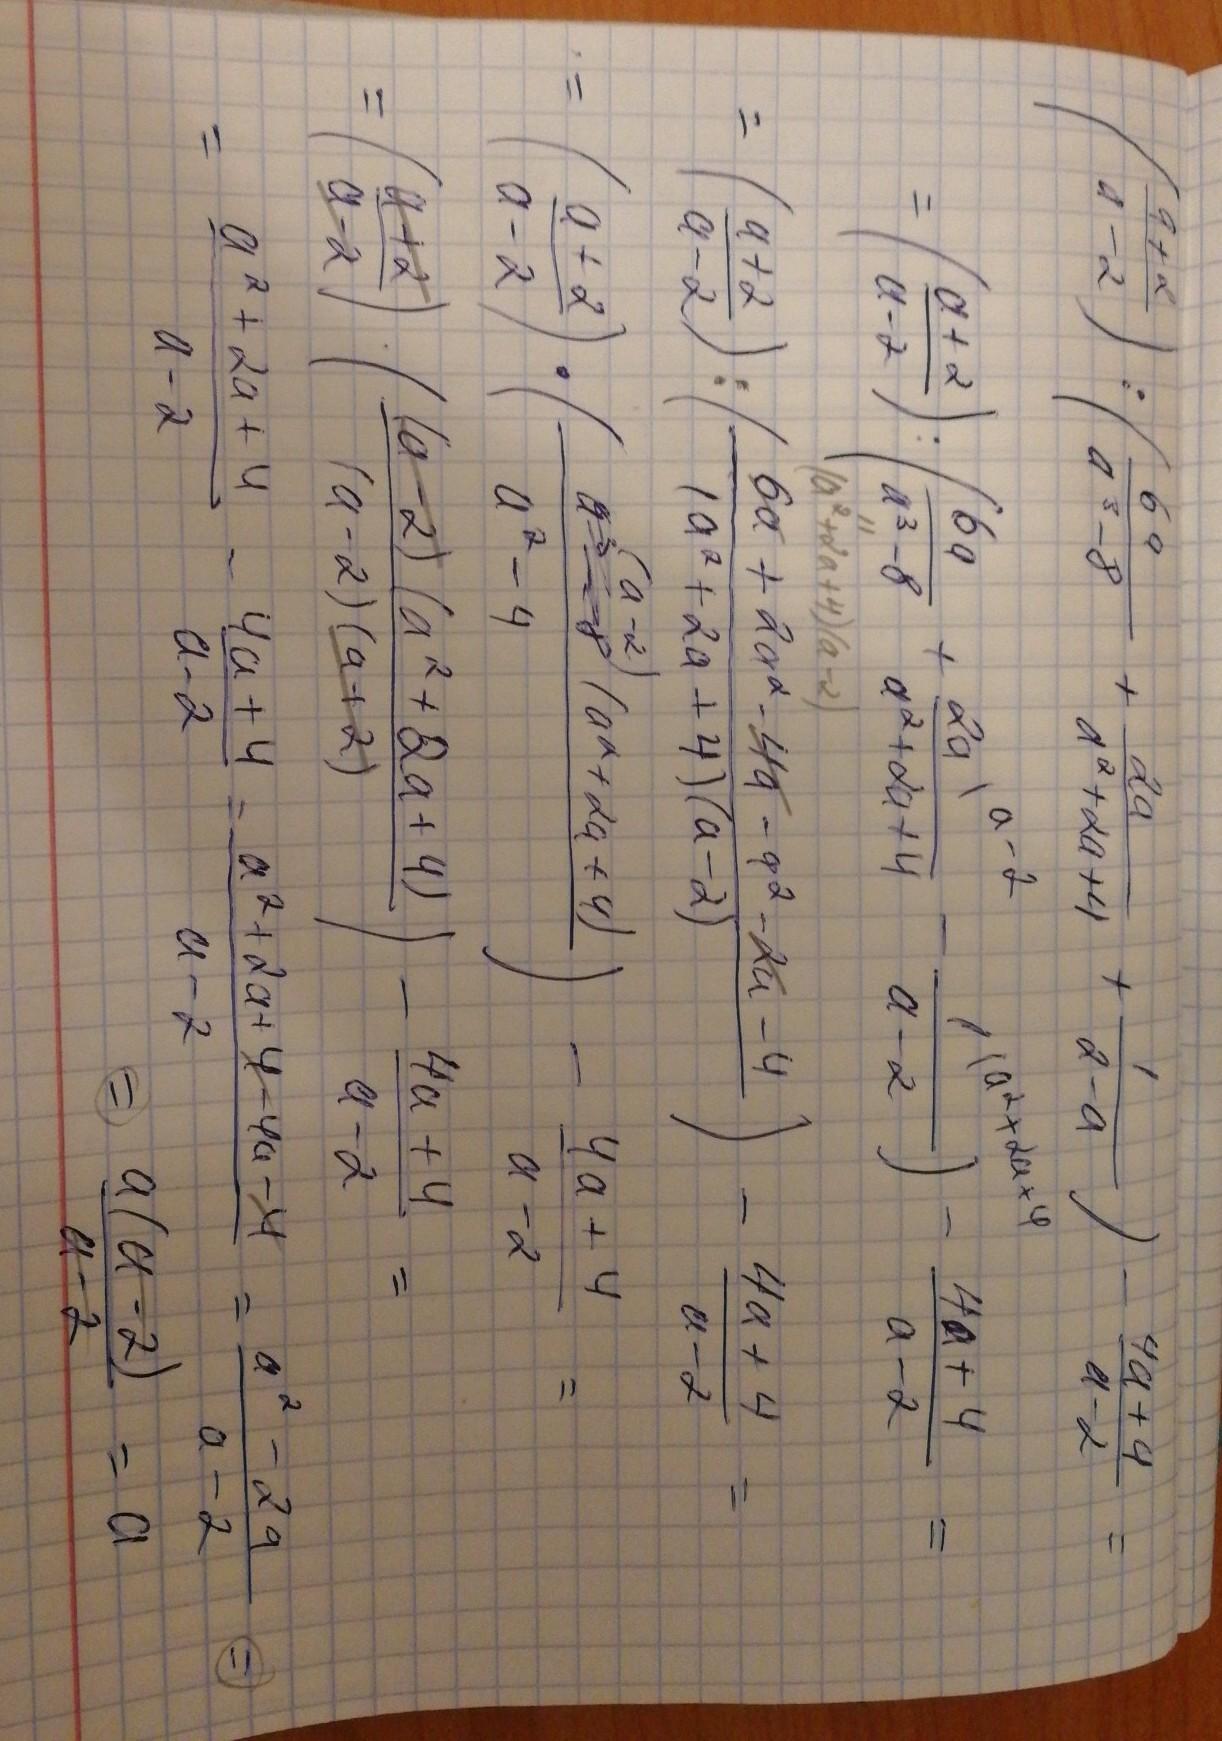 (a+2/a-2) : (6a/a³-8 + 2a/a²+2a+4 + 1/2-a) - 4a+4/a-2 =
= (a+2/a-2) : (6a/a³-8 + 2a\a-2/a²+2a+4 - 1\a²+2a+4/a-2) - 4a+4/a-2 =
" (a²+2a+4)(a-2)
= (a+2/a-2) : (6a+2a²-4a-a²-2a-4/(a²+2a+4)(a-2)) - 4a+4/a-2 =
= (a+2/a-2) · (a³-8 (a-2)(a²+2a+4)/a²-4) - 4a+4/a-2 =
= (a+2/a-2) · ((a-2)(a²+2a+4)/(a-2)(a+2)) - 4a+4/a-2 =
= a²+2a+4/a-2 - 4a+4/a-2 = a²+2a+4-4a-4/a-2 = a²-2a/a-2 =
= a(a-2)/a-2 = a